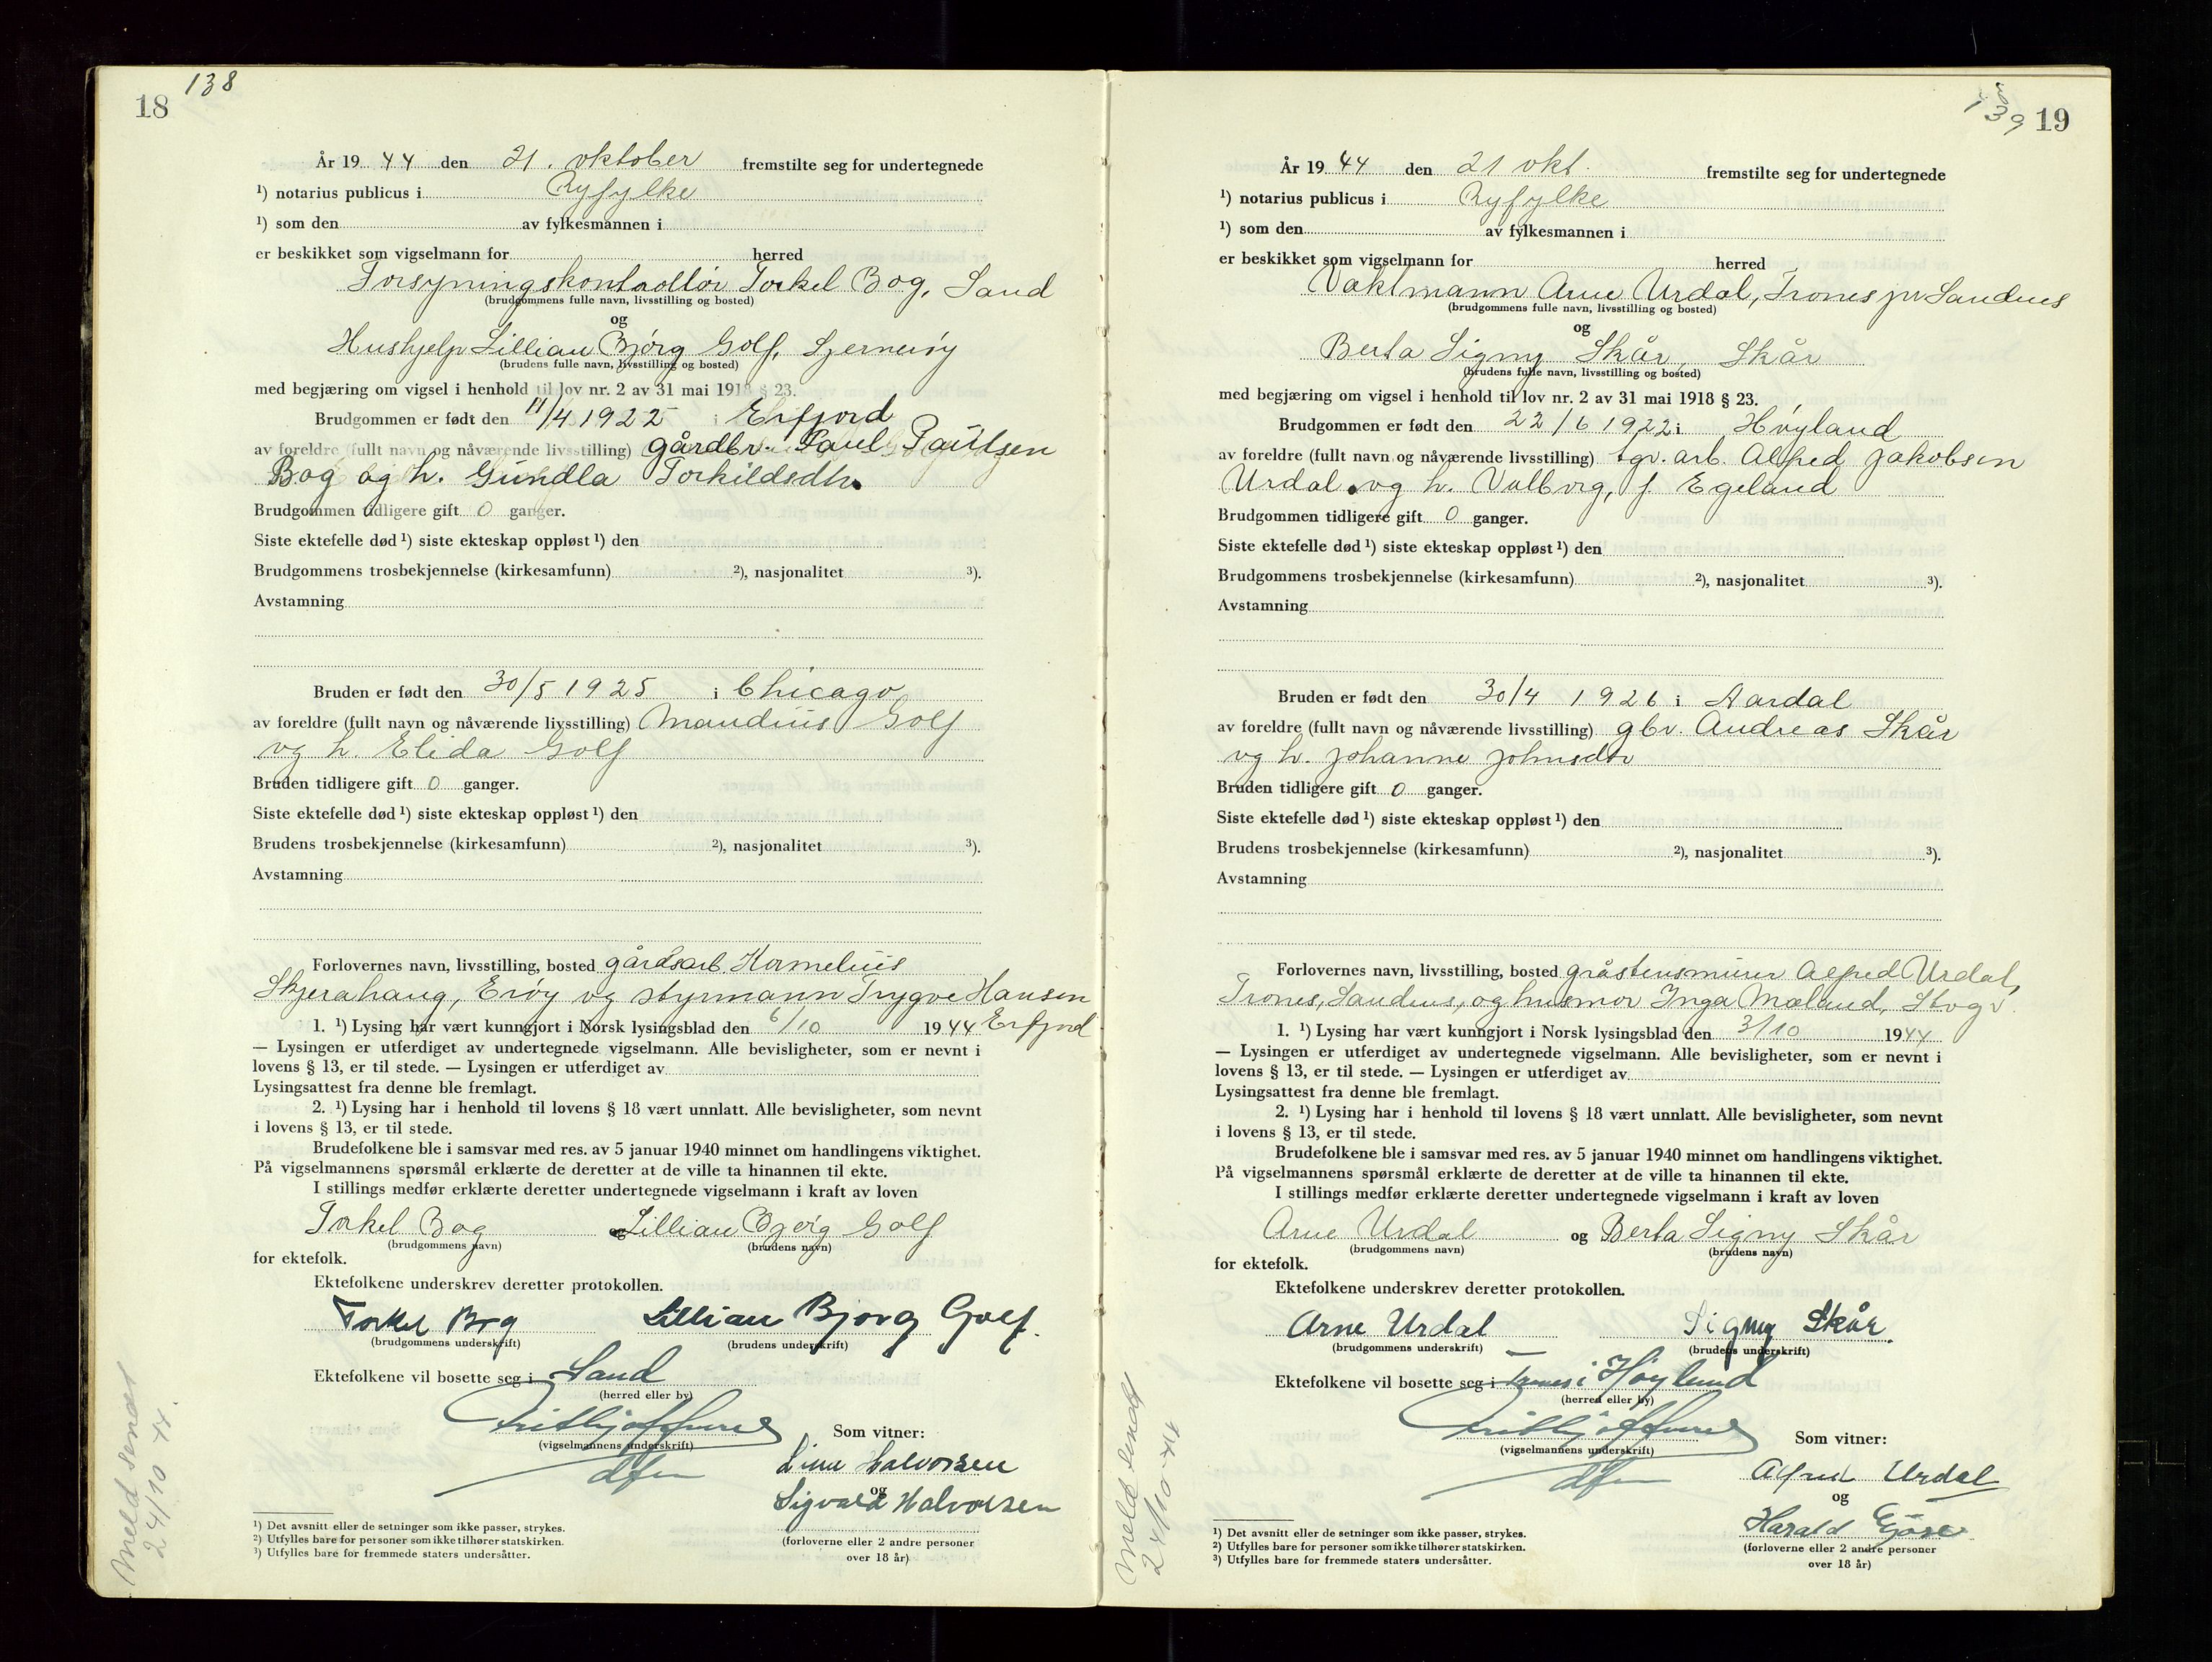 18
138
År 19 44 den 21. oktober fremstilte seg for undertegnede
¹) notarius publicus i Ryfylke
¹) som den av fylkesmannen i
er beskikket som vigselmann for herred
Forsyningskontrollør Torkel Bog, Sand
(brudgommens fulle navn, livsstilling og bosted)
og
Hushjelp Lillian Bjørg Golf, Sjernerøy
(brudens fulle navn, livsstilling og bosted)
med begjæring om vigsel i henhold til lov nr. 2 av 31 mai 1918 § 23.
Brudgommen er født den 11/4 1922 i Erfjord
av foreldre (fullt navn og nåværende livsstilling) gårdbr. Paul Paulsen
Bog og h. Gundla Torkildsdtr.
Brudgommen tidligere gift 0 ganger.
Siste ektefelle død ¹) siste ekteskap oppløst ¹) den
Brudgommens trosbekjennelse (kirkesamfunn) ²), nasjonalitet ³).
Avstamning
Bruden er født den 30/5 1925 i Chicago
av foreldre (fullt navn og nåværende livsstilling) Maudius Golf
og h. Elida Golf
Bruden tidligere gift 0 ganger.
Siste ektefelle død ¹) siste ekteskap oppløst ¹) den
Brudens trosbekjennelse (kirkesamfunn) ²), nasjonalitet ³).
Avstamning
Forlovernes navn, livsstilling, bosted gårdsarb. Kornelius
Skjerahaug, Erøy og styrmann Trygve Hansen
1. ¹) Lysing har vært kunngjort i Norsk lysingsblad den 6/10 1944 Erfjord
— Lysingen er utferdiget av undertegnede vigselmann. Alle bevisligheter, som er nevnt i
lovens § 13, er til stede. — Lysingen er utferdiget av
Lysingsattest fra denne ble fremlagt.
2. ¹) Lysing har i henhold til lovens § 18 vært unnlatt. Alle bevisligheter, som nevnt
i lovens § 13, er til stede.
Brudefolkene ble i samsvar med res. av 5 januar 1940 minnet om handlingens viktighet.
På vigselmannens spørsmål erklærte de deretter at de ville ta hinannen til ekte.
I stillings medfør erklærte deretter undertegnede vigselmann i kraft av loven
Torkel Bog Lillian Bjørg Golf
(brudgommens navn) (brudens navn)
for ektefolk.
Ektefolkene underskrev deretter protokollen.
Torkel Bog Lillian Bjorg Golf.
(brudgommens underskrift) (brudens underskrift)
Ektefolkene vil bosette seg i Sand
(herred eller by)
(vigselmannens underskrift)
Som vitner:
Halvorsen
og
Sigvald Halvorsen
(forloverne eller 2 andre personer
over 18 år)
¹) Det avsnitt eller de setninger som ikke passer, strykes.
²) Utfylles bare for personer som ikke tilhører statskirken.
³) Utfylles bare for fremmede staters undersåtter.
Meld sendt
24/10 44.
139 19
År 19 44 den 21 okt. fremstilte seg for undertegnede
¹) notarius publicus i Ryfylke
¹) som den av fylkesmannen i
er beskikket som vigselmann for herred
Vaktmann Arne Urdal, Trones pr Sandnes
(brudgommens fulle navn, livsstilling og bosted)
og
Berta Signy Skår, Skår
(brudens fulle navn, livsstilling og bosted)
med begjæring om vigsel i henhold til lov nr. 2 av 31 mai 1918 § 23.
Brudgommen er født den 22/6 1922 i Høyland
av foreldre (fullt navn og nåværende livsstilling) tgv. arb. Alfred Jakobsen
Urdal og h. Valborg, f Egeland
Brudgommen tidligere gift 0 ganger.
Siste ektefelle død ¹) siste ekteskap oppløst ¹) den
Brudgommens trosbekjennelse (kirkesamfunn) ²), nasjonalitet ³).
Avstamning
Bruden er født den 30/4 1926 i Aardal
av foreldre (fullt navn og nåværende livsstilling) gbr. Andreas Skår
og h. Johanne Johnsdtr
Bruden tidligere gift 0 ganger.
Siste ektefelle død ¹) siste ekteskap oppløst ¹) den
Brudens trosbekjennelse (kirkesamfunn) ²), nasjonalitet ³).
Avstamning
Forlovernes navn, livsstilling, bosted gråstensmurer Alfred Urdal,
Trones, Sandnes, og husmor Inga Mæland,
1. ¹) Lysing har vært kunngjort i Norsk lysingsblad den 3/10 1944
— Lysingen er utferdiget av undertegnede vigselmann. Alle bevisligheter, som er nevnt i
lovens § 13, er til stede. — Lysingen er utferdiget av
Lysingsattest fra denne ble fremlagt.
2. ¹) Lysing har i henhold til lovens § 18 vært unnlatt. Alle bevisligheter, som nevnt
i lovens § 13, er til stede.
Brudefolkene ble i samsvar med res. av 5 januar 1940 minnet om handlingens viktighet.
På vigselmannens spørsmål erklærte de deretter at de ville ta hinannen til ekte.
I stillings medfør erklærte deretter undertegnede vigselmann i kraft av loven
Arne Urdal og Berta Signy Skår
(brudgommens navn) (brudens navn)
for ektefolk.
Ektefolkene underskrev deretter protokollen.
Arne Urdal Signy Skår.
(brudgommens underskrift) (brudens underskrift)
Ektefolkene vil bosette seg i Trones i Høyland
(herred eller by)
(vigselmannens underskrift)
Som vitner:
Alfred Urdal
og
Harald
(forloverne eller 2 andre personer
over 18 år)
¹) Det avsnitt eller de setninger som ikke passer, strykes.
²) Utfylles bare for personer som ikke tilhører statskirken.
³) Utfylles bare for fremmede staters undersåtter.
Meld sendt
24/10 44